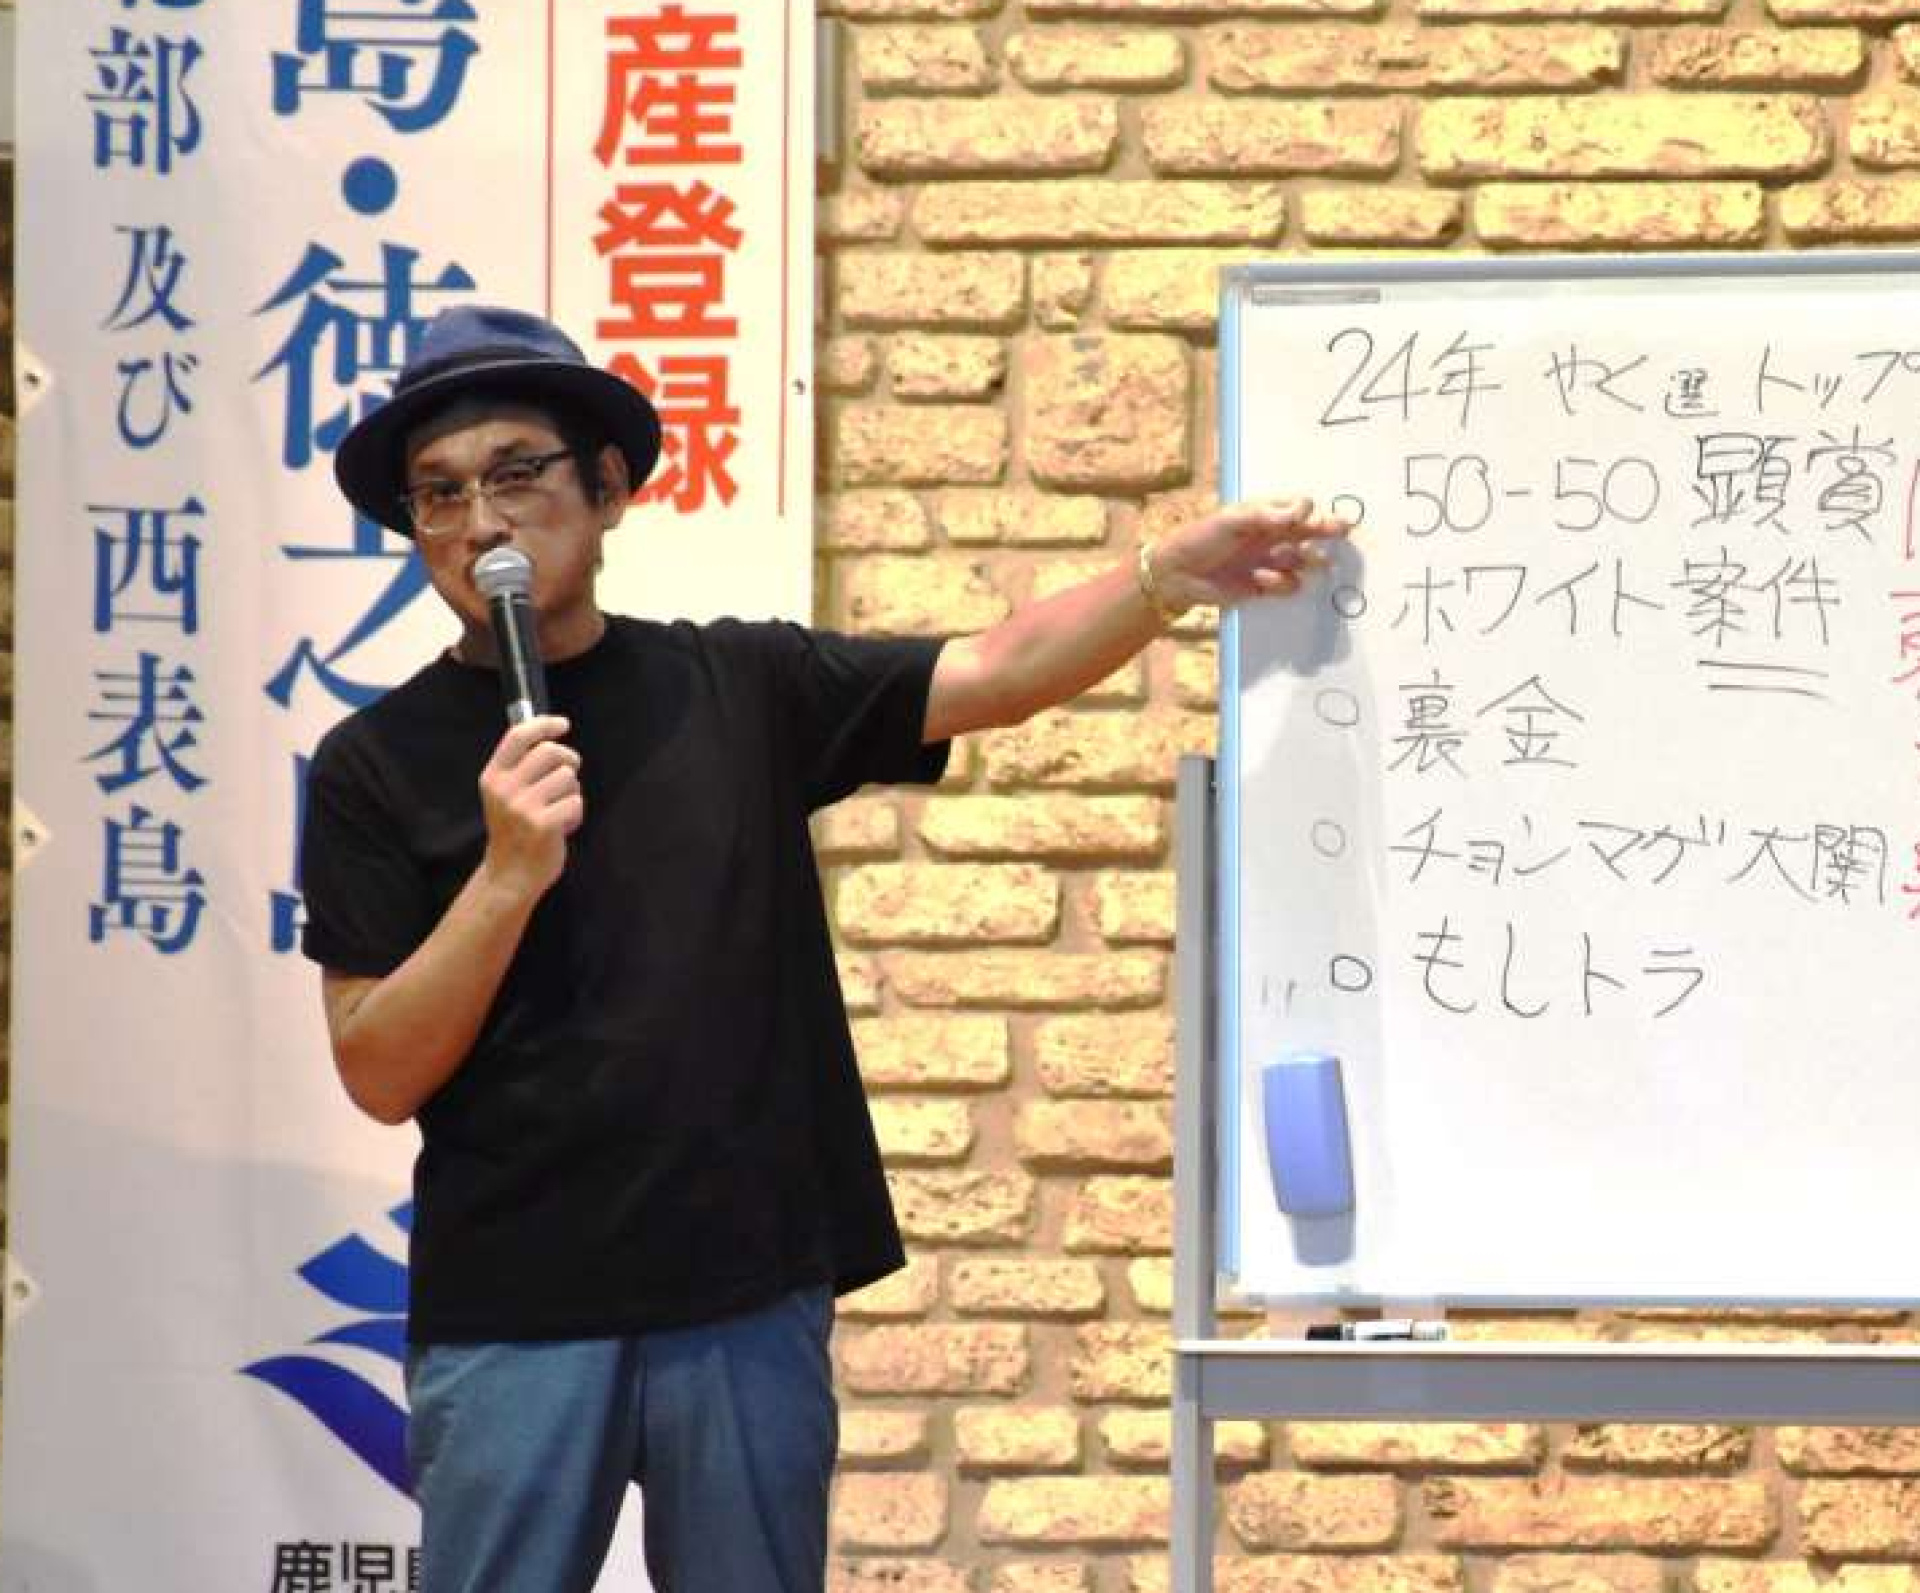 部 及び 西表島
島・徳之島
産登録
鹿児
24年 やく選 トップ
50-50 顕賞
ホワイト案件
裏金
チョンマゲ大関
もしトラ